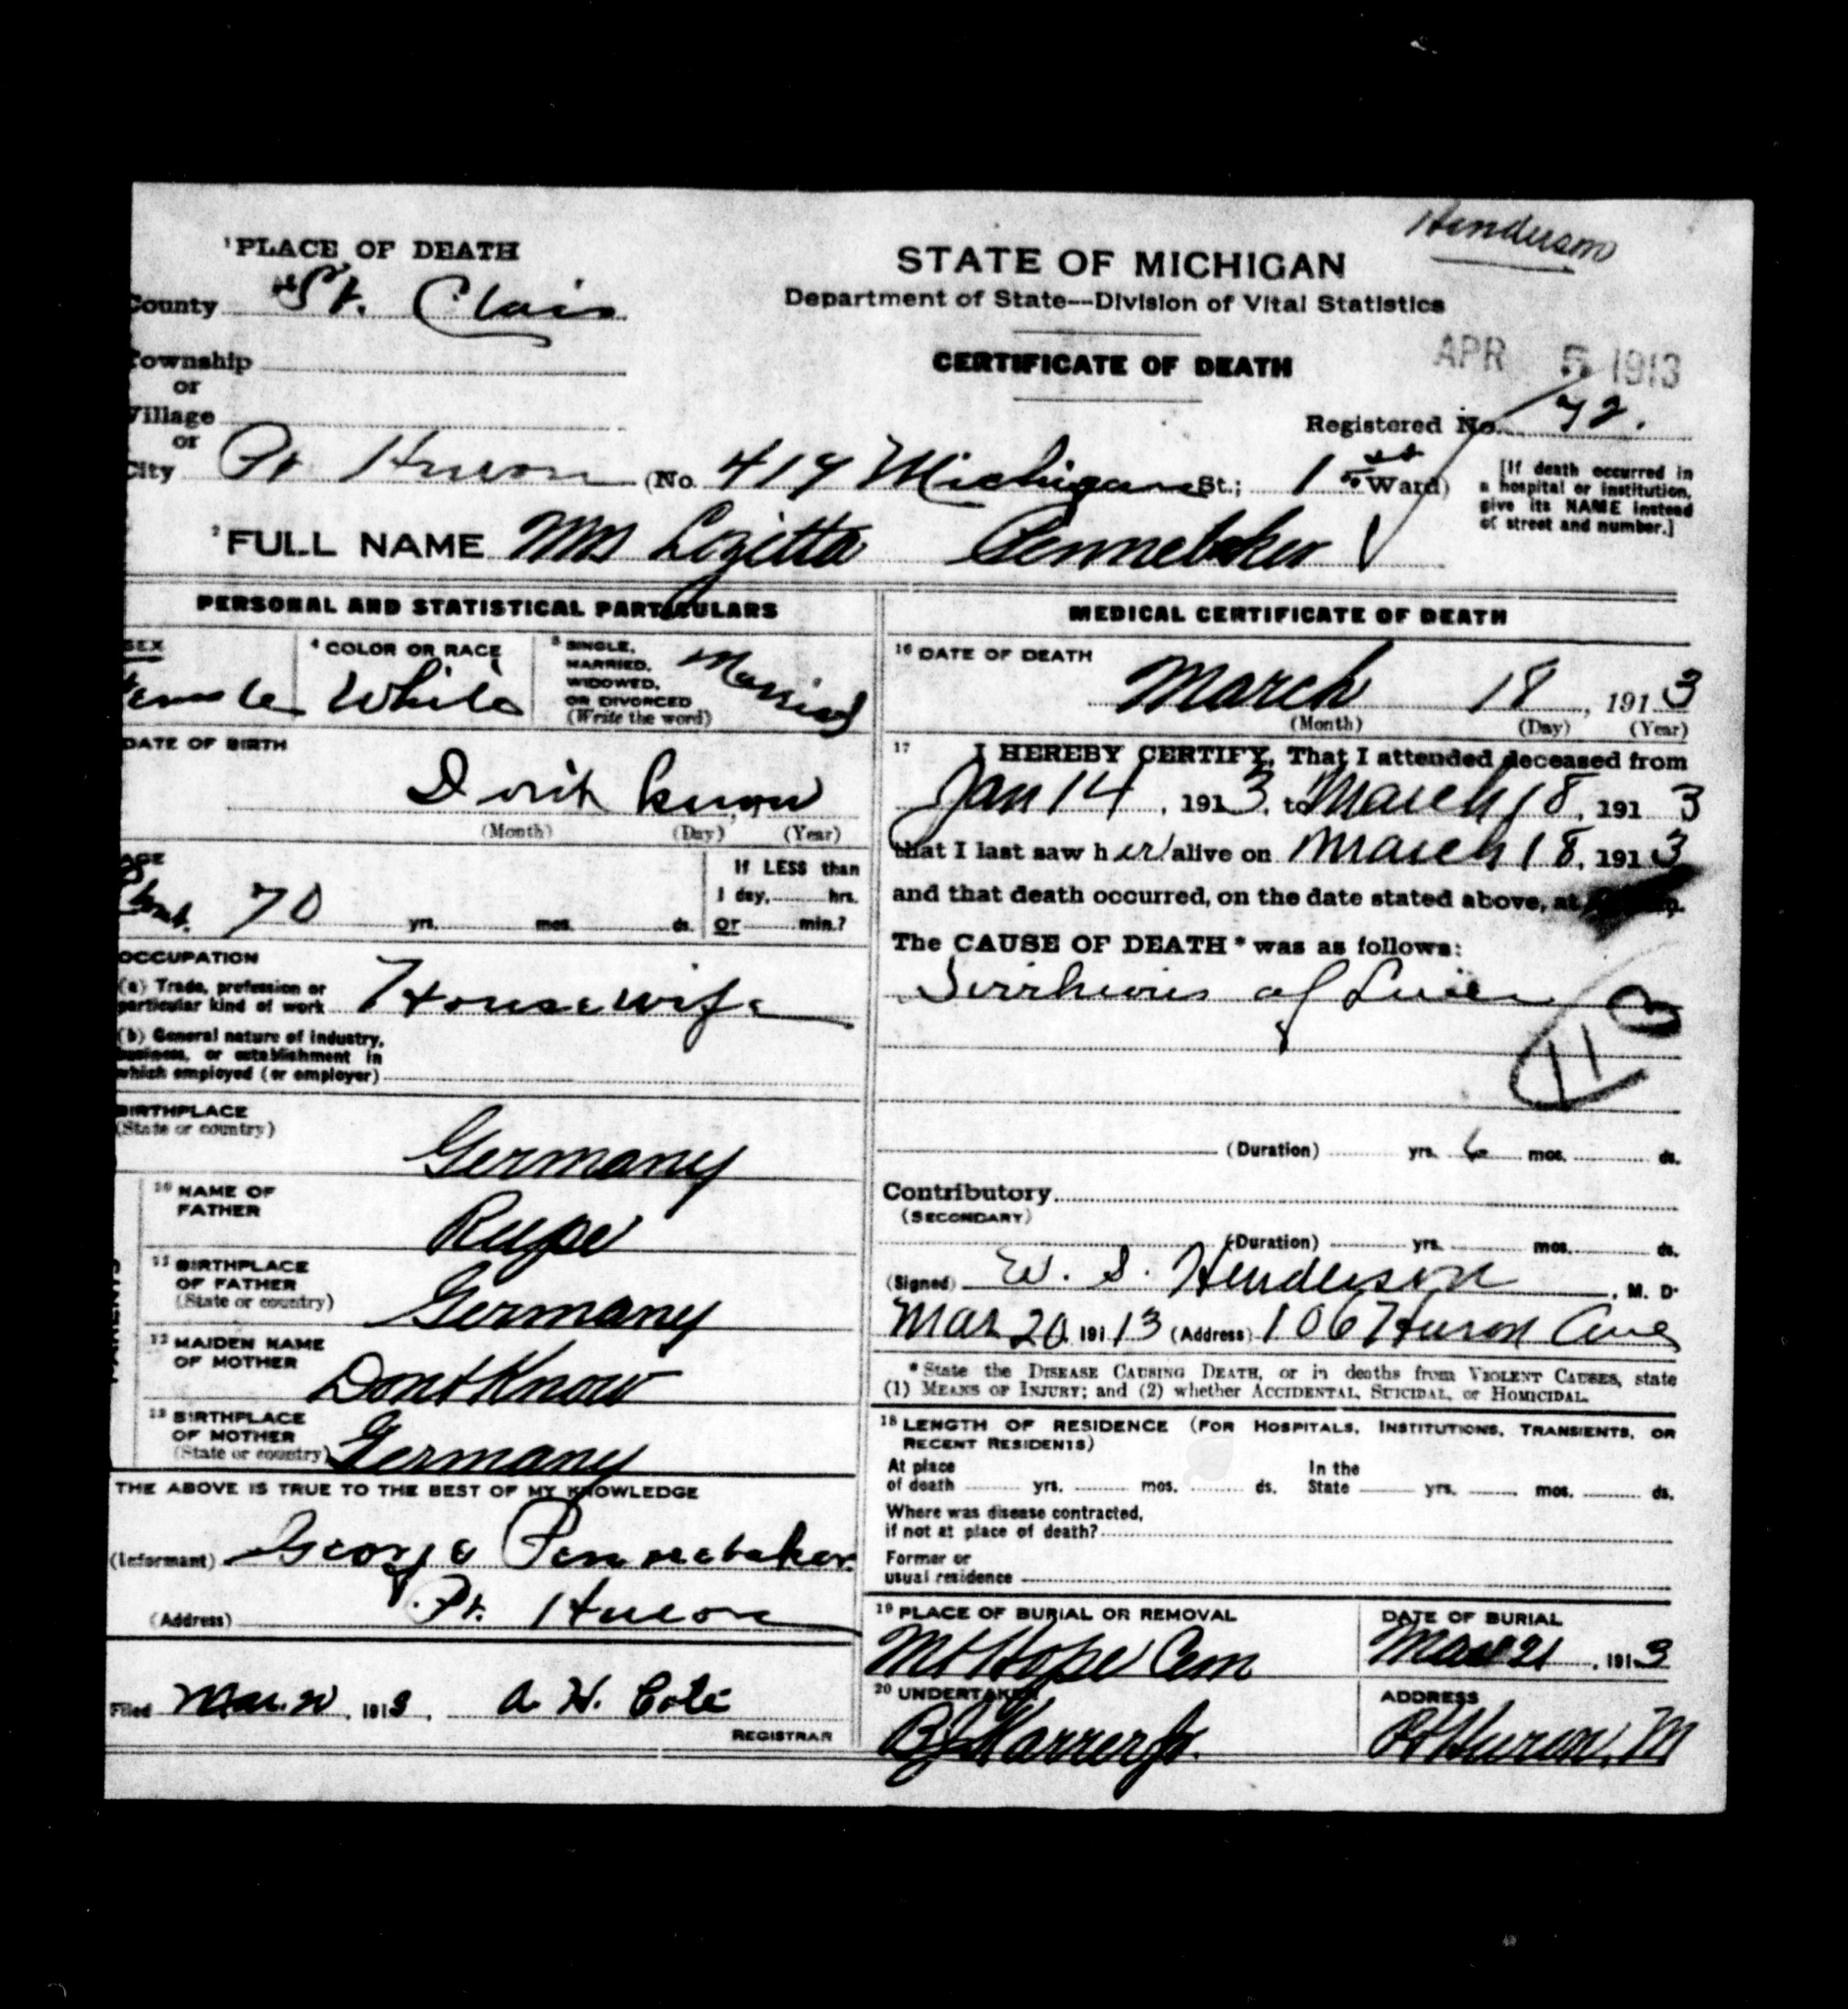 Henderson
¹PLACE OF DEATH
STATE OF MICHIGAN
Department of State—Division of Vital Statistics
County St. Clair
CERTIFICATE OF DEATH
APR 5 1913
Township
or
Village
or
Registered No. 72.
City Pt Huron (No. 419 Michigan St.; 1st Ward)
[If death occurred in
a hospital or institution,
give its NAME instead
of street and number.]
²FULL NAME Mrs Lozetta Pennebaker
PERSONAL AND STATISTICAL PARTICULARS
SEX
Female
⁴ COLOR OR RACE
White
⁵ SINGLE,
MARRIED,
WIDOWED,
OR DIVORCED
(Write the word)
Married
DATE OF BIRTH
Don't know
(Month) (Day) (Year)
AGE
About 70 yrs. mos. ds.
If LESS than
1 day, hrs.
or min.?
OCCUPATION
(a) Trade, profession or
particular kind of work Housewife
(b) General nature of industry,
business, or establishment in
which employed (or employer)
BIRTHPLACE
(State or country)
Germany
PARENTS
¹⁰ NAME OF
FATHER
Rupe
¹¹ BIRTHPLACE
OF FATHER
(State or country)
Germany
¹² MAIDEN NAME
OF MOTHER
Dont Know
¹³ BIRTHPLACE
OF MOTHER
(State or country)
Germany
THE ABOVE IS TRUE TO THE BEST OF MY KNOWLEDGE
(Informant) George Pennebaker
(Address) Pt. Huron
Filed Mar. 20, 1913, A. H. Cote
REGISTRAR
MEDICAL CERTIFICATE OF DEATH
¹⁶ DATE OF DEATH
March 18, 1913
(Month) (Day) (Year)
¹⁷ I HEREBY CERTIFY, That I attended deceased from
Jan 14, 1913, to March 18, 1913
that I last saw her alive on March 18, 1913
and that death occurred, on the date stated above, at
The CAUSE OF DEATH* was as follows:
Sirrhosis of Liver
113
(Duration) yrs. 6 mos. ds.
Contributory
(SECONDARY)
(Duration) yrs. mos. ds.
(Signed) W. S. Henderson, M. D.
Mar 20 191 13 (Address) 106 Huron Ave
*State the DISEASE CAUSING DEATH, or in deaths from VIOLENT CAUSES, state
(1) MEANS OF INJURY; and (2) whether ACCIDENTAL, SUICIDAL, or HOMICIDAL.
¹⁸ LENGTH OF RESIDENCE (FOR HOSPITALS, INSTITUTIONS, TRANSIENTS, OR
RECENT RESIDENTS)
At place
of death yrs. mos. ds.
In the
State yrs. mos. ds.
Where was disease contracted,
if not at place of death?
Former or
usual residence
¹⁹ PLACE OF BURIAL OR REMOVAL
Mt Hope Cem
DATE OF BURIAL
Mar 21, 1913
²⁰ UNDERTAKER
B J Karrer Jr.
ADDRESS
Pt Huron, M